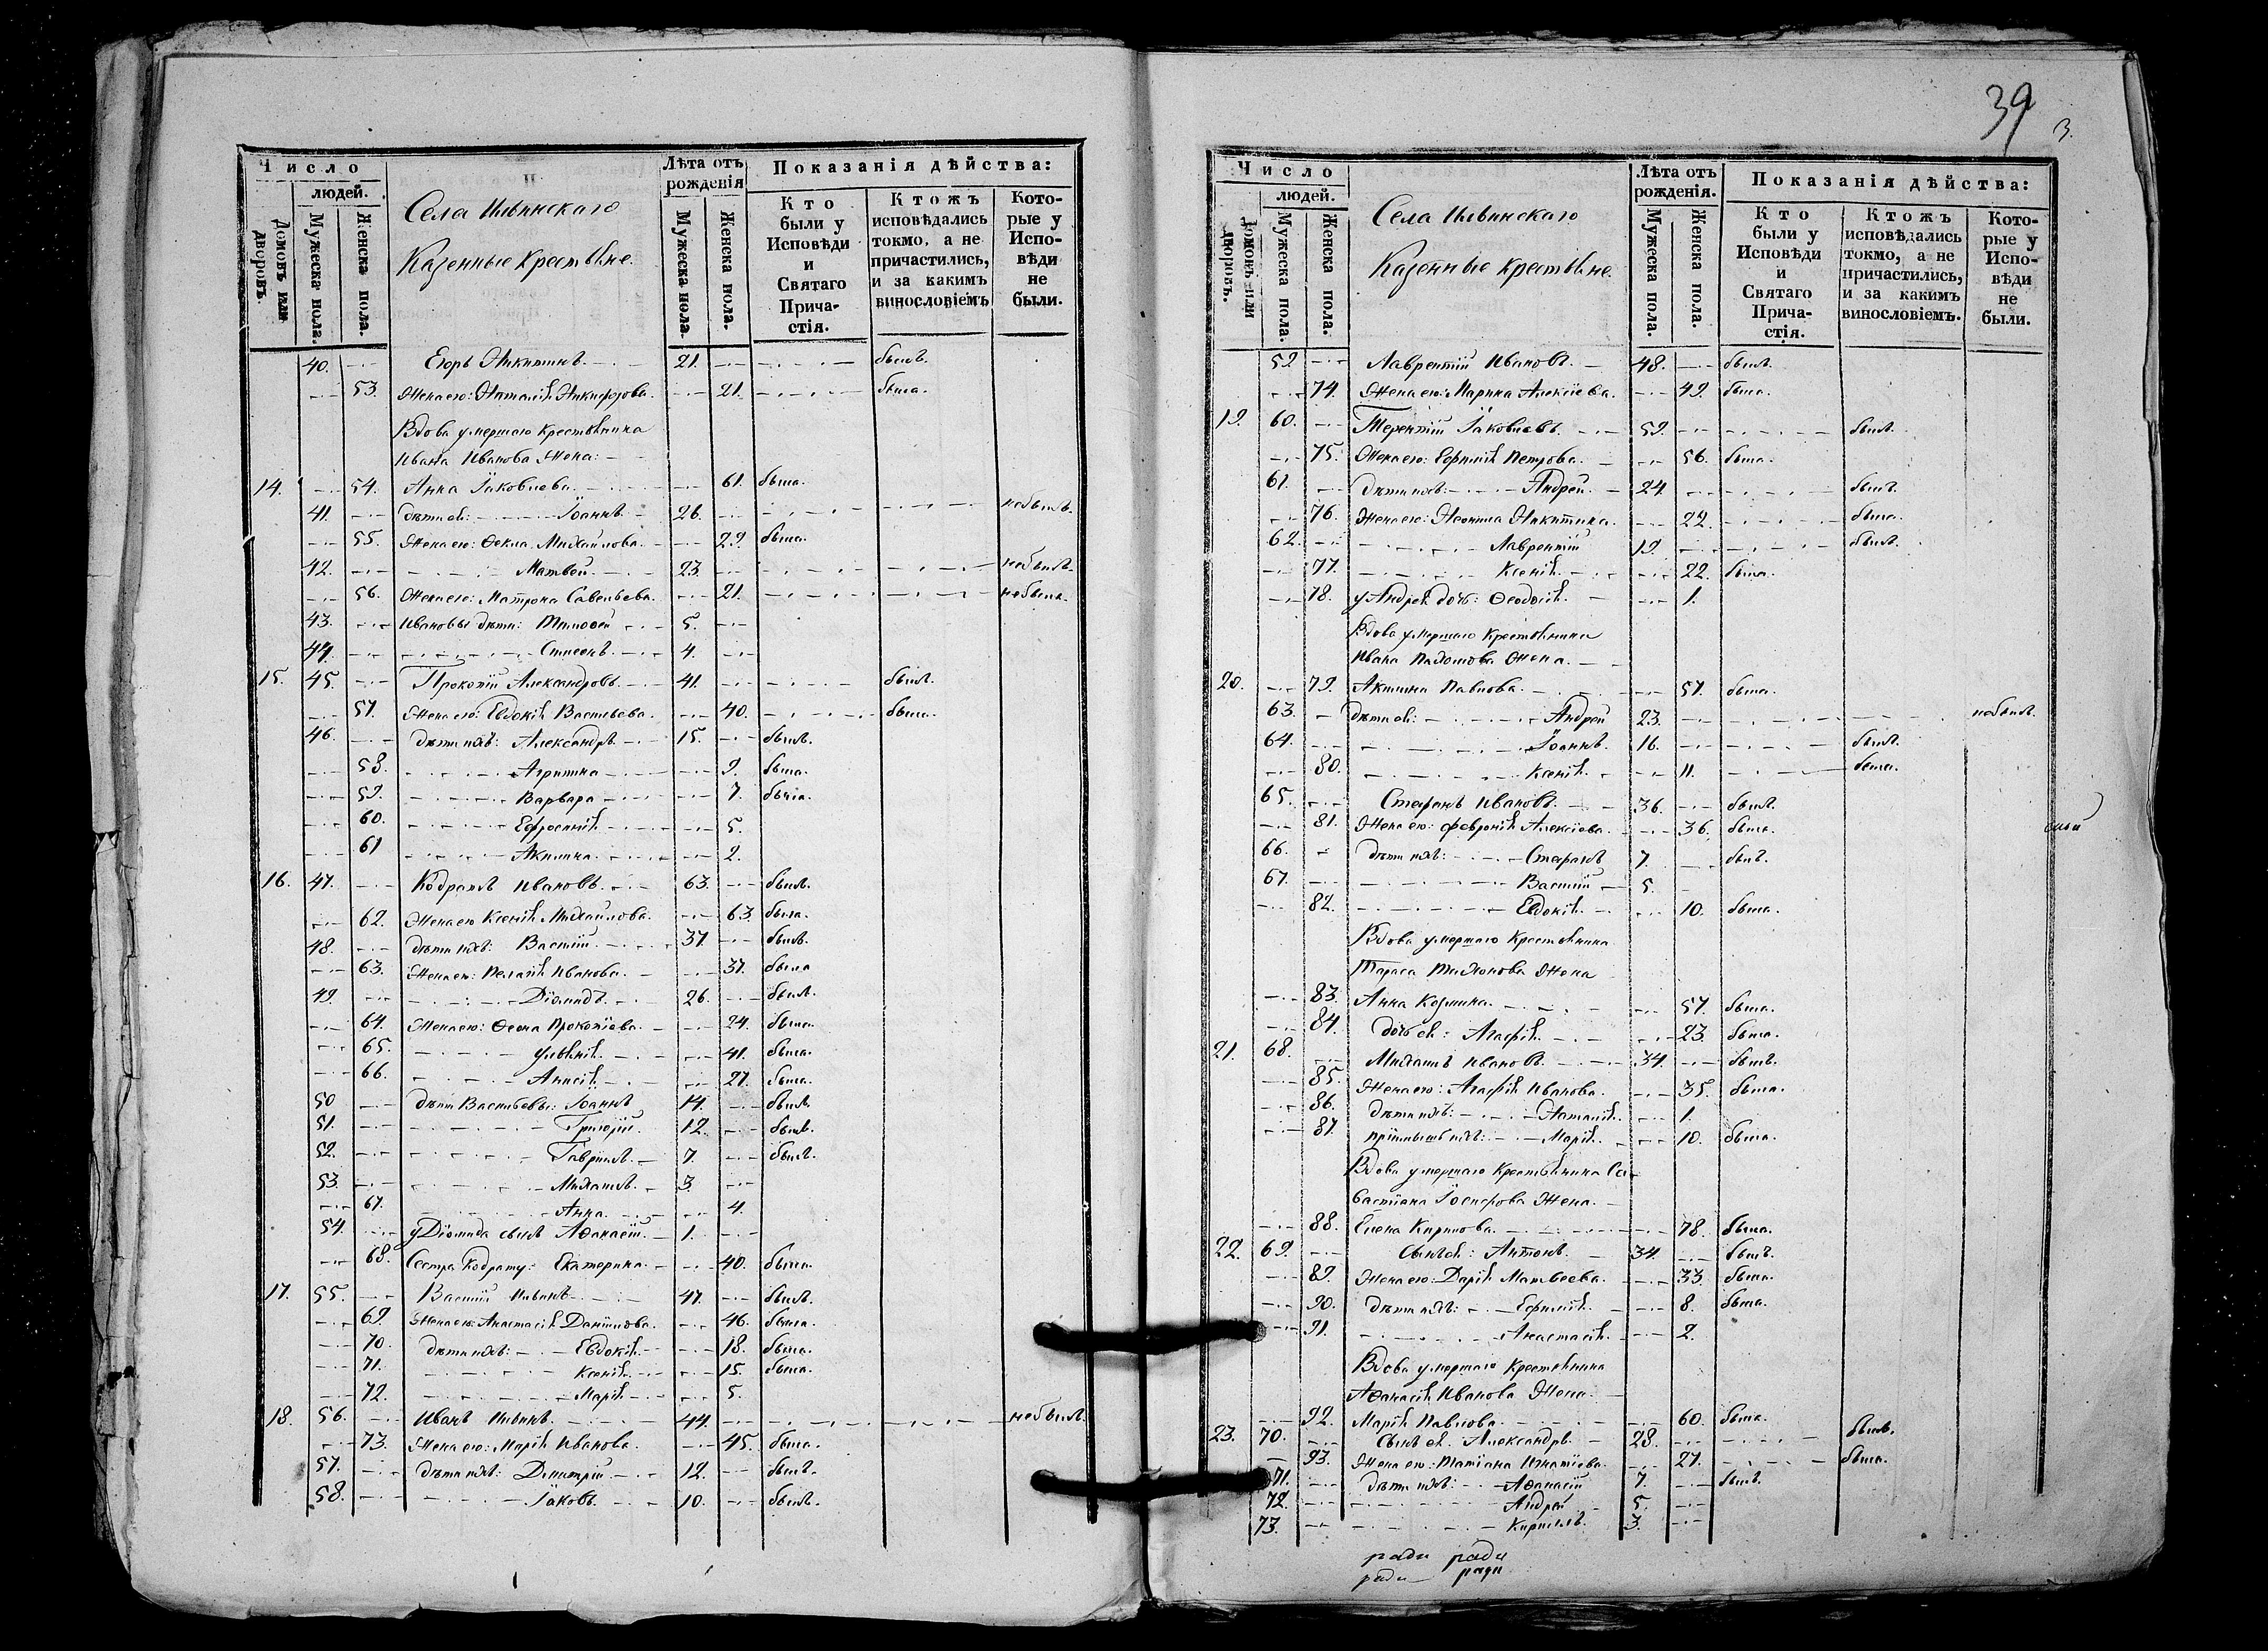 Число
людей.
Домовъ или дворовъ.
Мужеска пола.
Женска пола.
Села Ильинскаго
Казенные Крестьяне.
Лѣта отъ рожденія
Мужеска пола.
Женска пола.
Показанія дѣйства:
Кто были у Исповѣди и Святаго Прича-стія.
Ктожъ исповѣдались токмо, а не причастились, и за какимъ винословіемъ
Кото-рые у Испо-вѣди не были.
40. Егоръ Никитинъ 21. былъ.
53. Жена его: Наталія Никифорова. 21. была.
Вдова умершаго Крестьянина
Ивана Иванова Жена:
14. 54. Анна Іаковлева. 61. была.
41. дѣти ея: Іоаннъ 26. небылъ.
55. Жена его: Ѳекла Михайлова. 29. была.
42. Матвей. 23. небылъ.
56. Жена его: Матрона Савельева. 21. небыла.
43. Ивановы дѣти: Тимоѳей 5.
44. Стефанъ. 4.
15. 45. Прокопій Александровъ. 41. былъ.
57. Жена его: Евдокія Васильева. 40. была.
46. дѣти ихъ: Александръ 15. былъ.
58. Агрипина 9. была.
59. Варвара 7. была.
60. Ефросинія 5.
61 Акилина. 2.
16. 47. Кодратъ Ивановъ. 63. былъ.
62. Жена его Ксенія Михайлова. 63. была.
48. дѣти ихъ: Василій 37. былъ.
63. Жена его: Пелагія Иванова. 37. была
49. Діомидъ. 26. былъ.
64. Жена его: Прокопіева. 24. была.
65. Уліянія. 41. была.
66. Анисія. 27. была.
50 дѣти Васильевы: Іоаннъ 14. былъ.
51. Григорій. 12. былъ.
52. Гавріилъ. 7. былъ.
53. Михаилъ. 3.
67. Анна. 4.
54. у Діомида сынъ Аѳанасій. 1.
68. Сестра Кодрату: Екатерина. 40. была.
17. 55. Василій 47. былъ.
69. Жена его: Анастасія Даніилова. 46. была.
70. дѣти ихъ: Евдокія. 18. была.
71. Ксенія. 15. была.
72. Марія. 5.
18. 56. Иванъ 44. небылъ.
73. Жена его: Марія Иванова. 45. была.
57. дѣти ихъ: Димитрій 12. былъ.
58. Іаковъ. 10. былъ.
39
3.
Число
людей.
Домовъ или дворовъ.
Мужеска пола.
Женска пола.
Села Ильинскаго
Казенные Крестьяне.
Лѣта отъ рожденія.
Мужеска пола.
Женска пола.
Показанія дѣйства:
Кто были у Исповѣди и Святаго Прича-стія.
Ктожъ исповѣдались токмо, а не причастились, и за какимъ винословіемъ.
Кото-рые у Испо-вѣди не были.
59 Лаврентій Ивановъ. 48. былъ.
74. Жена его: Марина Алексіева. 49. была.
19. 60. Терентій Іаковлевъ. 59. былъ.
75. Жена его: Ефимія Петрова. 56. была.
61. дѣти ихъ: Андрей. 24. былъ.
76. Жена его: Неонила Никитина. 22. была.
62. Лаврентій 19. былъ.
77. Ксенія. 22. была.
78. у Андрея дочь: Ѳеодосія. 1.
Вдова умершаго Крестьянина
Ивана Пахомова Жена.
20. 79. Акилина Павлова. 57. была.
63. дѣти ея: Андрей 23. небылъ.
64. Іоаннъ. 16. былъ.
80. Ксенія. 11. была.
65. Стефанъ Ивановъ. 36. былъ.
81. Жена его: Февронія Алексіева. 36. была.
66. дѣти ихъ: Стефанъ 7. былъ.
67. Василій 5.
82. Евдокія. 10. была.
Вдова умершаго Крестьянина
Тараса Тихонова Жена
83. Анна Козмина. 57. была.
84. дочь ея: Агафія. 23. была.
21. 68. Михаилъ Ивановъ. 34. былъ.
85. Жена его: Агафія Иванова. 35. была.
86. дѣти ихъ: Наталія. 1.
87. ихъ: Марія. 10. была.
Вдова умершаго Крестьянина Са-
вастіана Іосифова Жена.
88. Елена Кирилова. 78. была.
22. 69. Сынъ ея: Антонъ. 34. былъ.
89. Жена его: Дарія Матвеева. 33. была.
90. дѣти ихъ: Ефимія. 8. была.
91. Анастасія. 2.
Вдова умершаго Крестьянина
Аѳанасія Иванова Жена.
92. Марія Павлова. 60. была.
23. 70. Сынъ ея. Александръ. 28. былъ.
93. Жена его: Татіана Игнатіева. 27. была.
71. дѣти ихъ: Аѳанасій 7. былъ.
72. Андрей 5.
73. Кирилъ. 3.
ради ради
ради ради